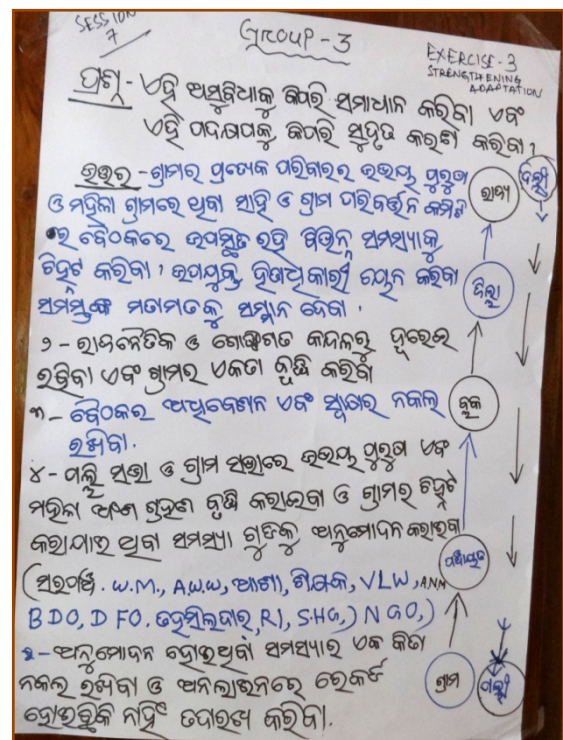 SESSION
7
GROUP - 3
EXERCISE - 3
STRENGTHENING
ADAPTATION
ପ୍ରଶ୍ନ - ଏହି ଅସୁବିଧାକୁ କିପରି ସମାଧାନ କରିବା ଏବଂ
ଏହି ପଦକ୍ଷେପକୁ କିପରି ସୁଦୃଢ କରଣ କରିବା ?
ଉତ୍ତର - ଗ୍ରାମର ପ୍ରତ୍ୟେକ ପରିବାରର ଉଭୟ ପୁରୁଷ
ଓ ମହିଳା ଗ୍ରାମରେ ଥିବା ସାହି ଓ ଗ୍ରାମ ପରିବର୍ତ୍ତନ କମିଟି
ର ବୈଠକରେ ଉପସ୍ଥିତ ରହି ବିଭିନ୍ନ ସମସ୍ୟାକୁ
ଚିହ୍ନଟ କରିବା । ଉପଯୁକ୍ତ ହିତାଧିକାରୀ ଚୟନ କରିବା
ସମସ୍ତଙ୍କ ମତାମତକୁ ସମ୍ମାନ ଦେବା ।
୨ - ରାଜନୈତିକ ଓ ଗୋଷ୍ଠୀଗତ କନ୍ଦଳରୁ ଦୂରେଇ
ରଖିବା ଏବଂ ଗ୍ରାମର ଏକତା ବୃଦ୍ଧି କରିବା
୩ - ବୈଠକର ଅଧିବେଶନ ଏବଂ ସ୍ୱାକ୍ଷର ନକଲ
ରଖିବା .
୪ - ପଲ୍ଲି ସଭା ଓ ଗ୍ରାମ ସଭାରେ ଉଭୟ ପୁରୁଷ ଏବଂ
ମହିଳା ଅଂଶ ଗ୍ରହଣ ବୃଦ୍ଧି କରାଇବା ଓ ଗ୍ରାମର ଚିହ୍ନଟ
କରାଯାଇ ଥିବା ସମସ୍ୟା ଗୁଡିକୁ ଅନୁମୋଦନ କରାଇବା
(ସରପଞ୍ଚ . W.M., A.W.W, ଆଶା, ଶିକ୍ଷକ, VLW, ANM
BDO, DFO. ତହସିଲଦାର, RI, S.H.G,) NGO,)
୫ - ଅନୁମୋଦନ ହୋଇଥିବା ସମସ୍ୟାର ଏକ କିତା
ନକଲ ରଖିବା ଓ ଅନଲାଇନରେ ରେକର୍ଡ
ହୋଇଛିକି ନାହିଁ ତଦାରଖ କରିବା.
ରାଜ୍ୟ
ଦିଲ୍ଲୀ
ଜିଲ୍ଲା
ବ୍ଲକ
ପଞ୍ଚାୟତ
ଗ୍ରାମ
ପଲ୍ଲୀ